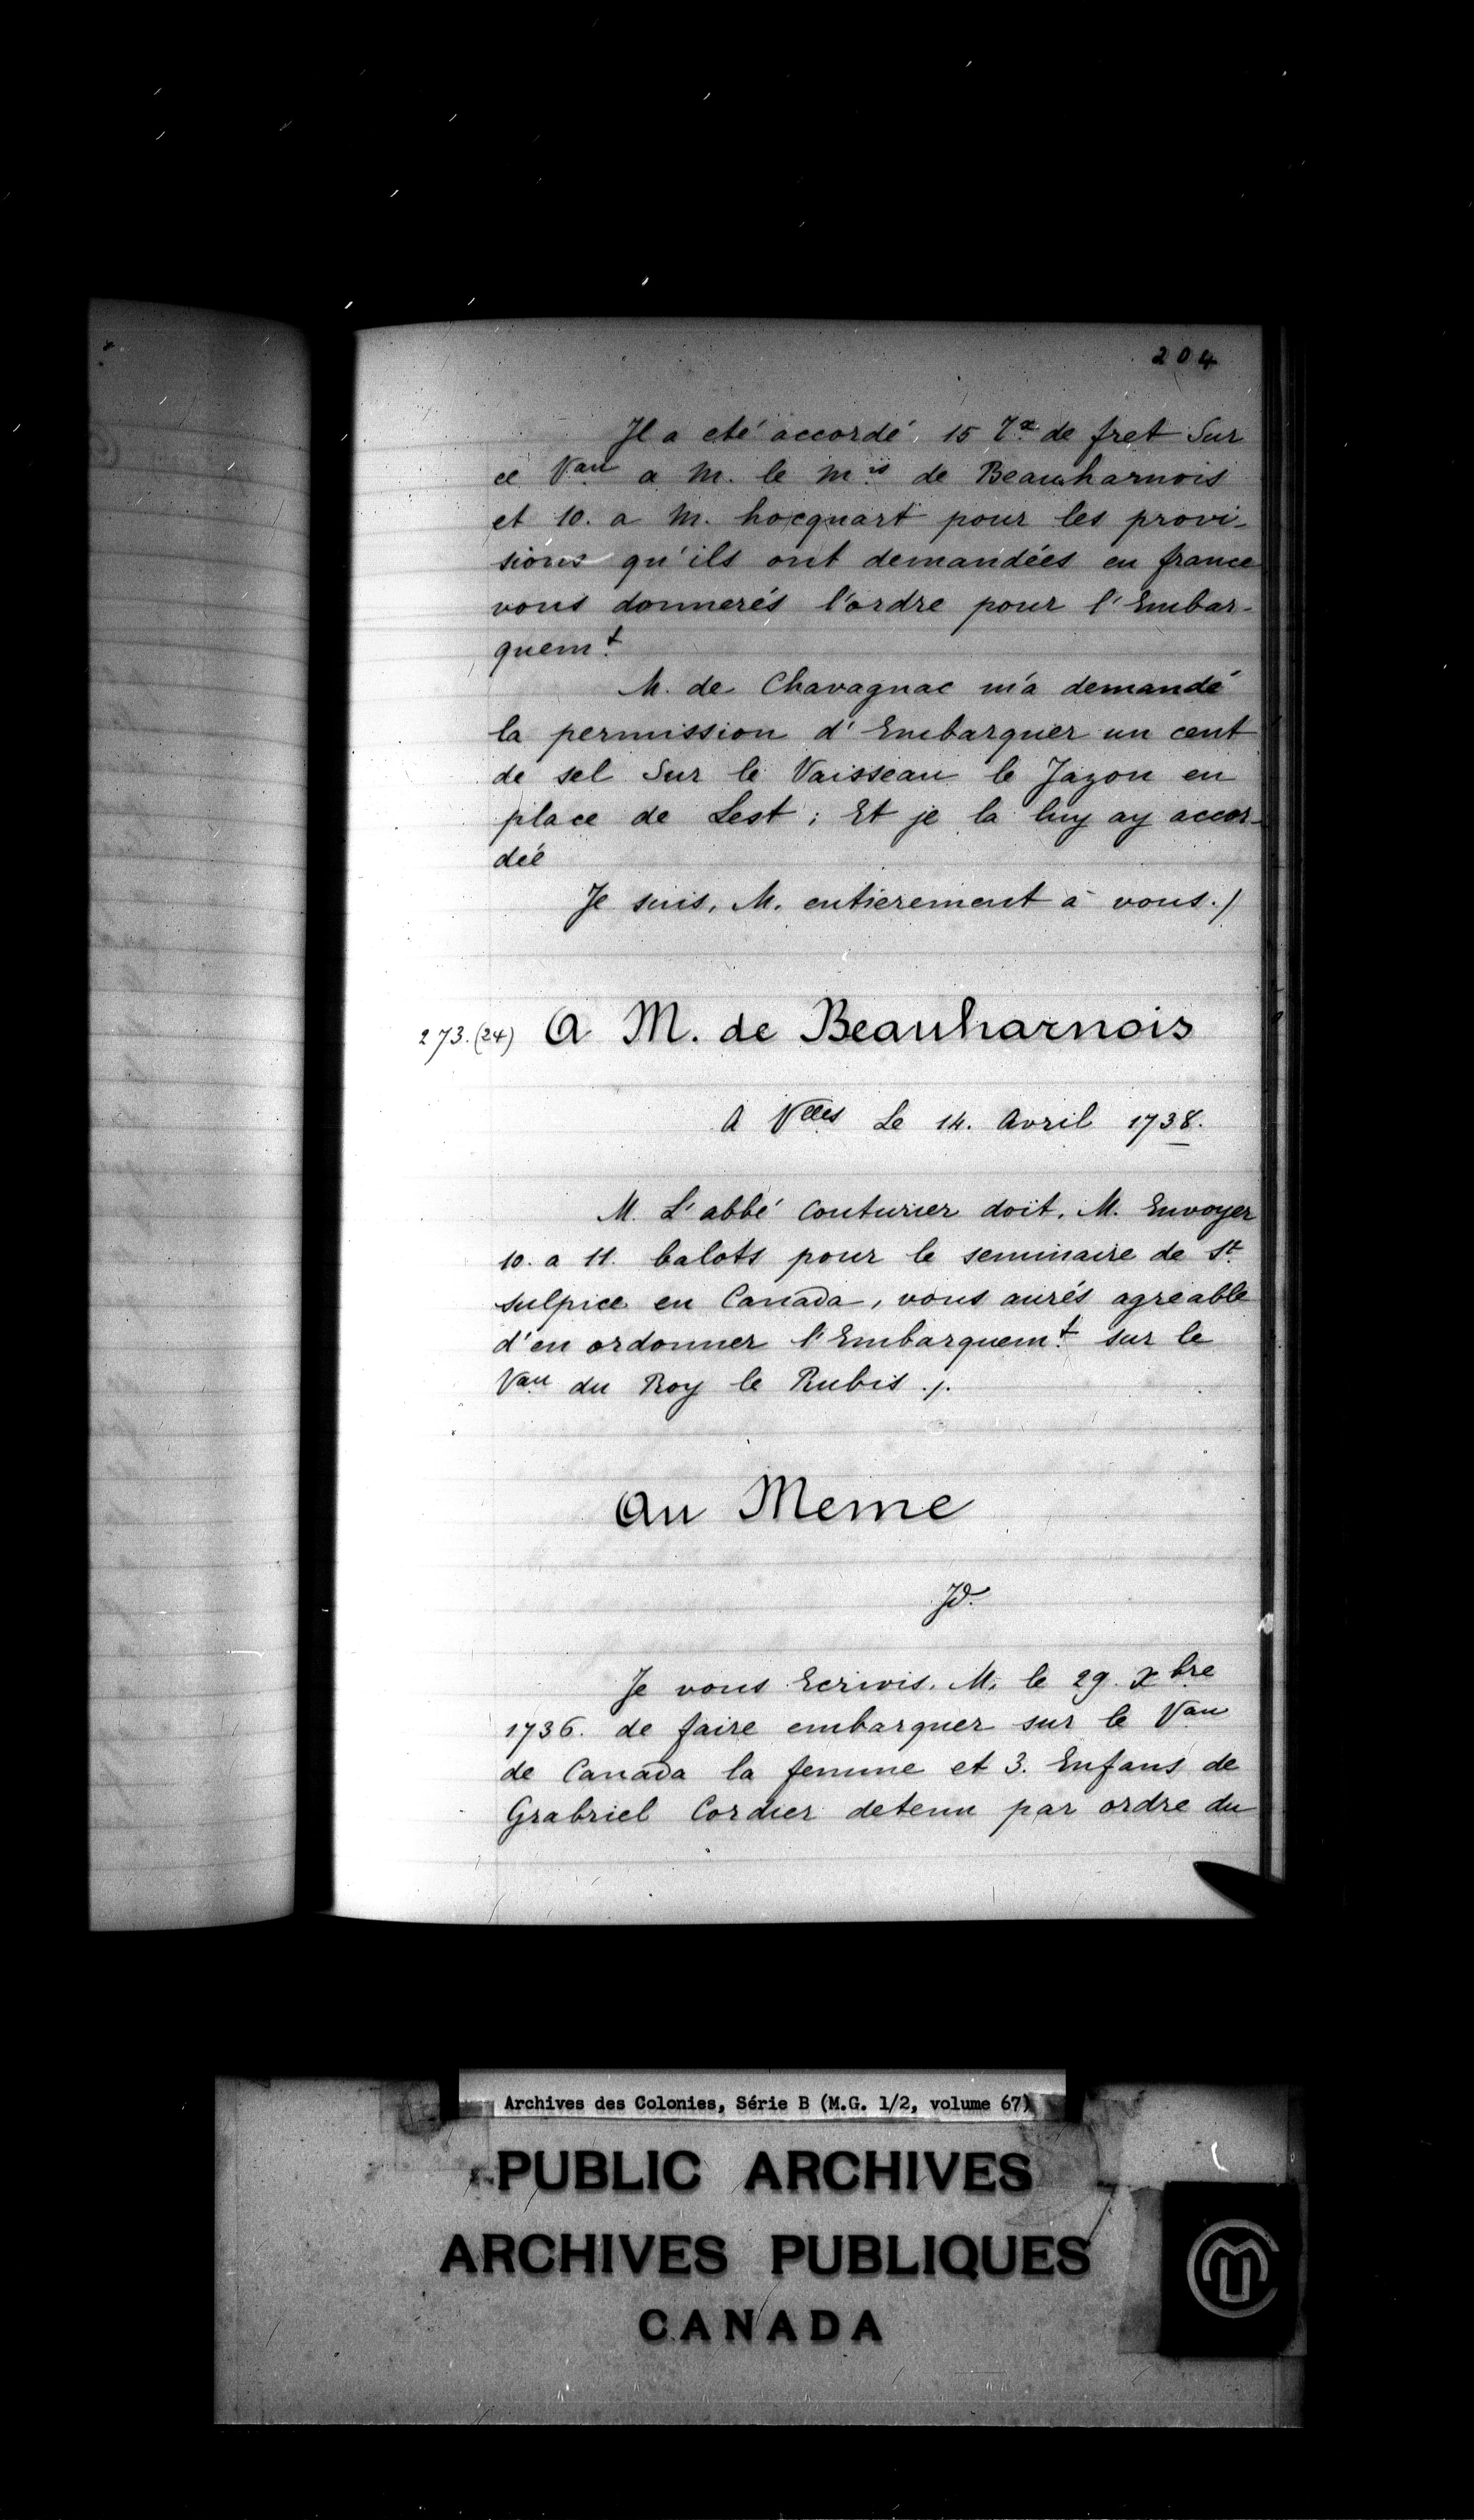 204
Il a eté accordé, 15 Tx de fret Sur
ce Vau a M. le Mis de Beauharnois
et 10. a M. hocquart pour les provi-
sions qu'ils ont demandées en france
vous donnerés l'ordre pour l'Embar-
quemt
M. de Chavagnac m'a demandé
la permission d'Embarquer un cent
de sel Sur le Vaisseau le Jazon en
place de Lest ; Et je la luy ay accor-
deé
Je suis, M. entierement à vous./
273.(24) A M. de Beauharnois
A Vlles Le 14. Avril 1738.
M. L'abbé Couturier doit, M. Envoyer
10. a 11. balots pour le seminaire de St
Sulpice en Canada, vous aurés agreable
d'en ordonner l'Embarquemt sur le
Vau du Roy le Rubis ./.
Au Meme
Jd.
Je vous Ecrivis, M. le 29. xbre
1736. de faire embarquer sur le Vau
de Canada la femme et 3. Enfans de
Grabriel Cordier detenu par ordre du
Archives des Colonies, Série B (M.G. 1/2, volume 67)
PUBLIC ARCHIVES
ARCHIVES PUBLIQUES
CANADA